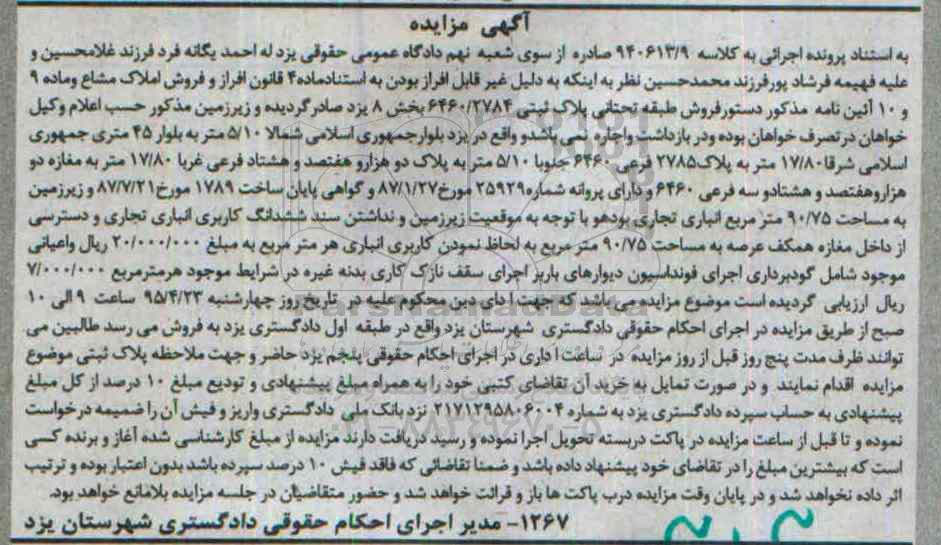 آگهی مزایده
به استناد پرونده اجرائی به کلاسه ۹۴۰۶۱۳/۹ صادره از سوی شعبه نهم دادگاه عمومی حقوقی یزد له احمد یگانه فرد فرزند غلامحسین و
علیه فهیمه فرشاد پور فرزند محمدحسین نظر به اینکه به دلیل غیر قابل افراز بودن به استناد ماده۴ قانون افراز و فروش املاک مشاع وماده ۹
و ۱۰ آئین نامه مذکور دستورفروش طبقه تحتانی پلاک ثبتی ۶۴۶۰/۲۷۸۴ بخش ۸ یزد صادرگردیده و زیرزمین مذکور حسب اعلام وکیل
خواهان درتصرف خواهان بوده ودر بازداشت واجاره نمی باشدو واقع در یزد بلوارجمهوری اسلامی شمالا ۵/۱۰ متر به بلوار ۴۵ متری جمهوری
اسلامی شرقا ۱۷/۸۰ متر به پلاک۲۷۸۵ فرعی ۶۴۶۰ جلوبا ۵/۱۰ متر به پلاک دو هزارو هفتصد و هشتاد فرعی غربا ۱۷/۸۰ متر به مغازه دو
هزاروهفتصد و هشتادو سه فرعی ۶۴۶۰ و دارای پروانه شماره ۲۵۹۲۹ مورخ۸۷/۱/۲۷ و گواهی پایان ساخت ۱۷۸۹ مورخ۸۷/۷/۲۱ و زیرزمین
به مساحت ۹۰/۷۵ متر مربع انباری تجاری بودهو با توجه به موقعیت زیرزمین و نداشتن سند ششدانگ کاربری انباری تجاری و دسترسی
از داخل مغازه همکف عرصه به مساحت ۹۰/۷۵ متر مربع به لحاظ نمودن کاربری انباری هر متر مربع به مبلغ ۲۰/۰۰۰/۰۰۰ ریال واعیانی
موجود شامل گودبرداری اجرای فونداسیون دیوارهای باربر اجرای سقف نازک کاری بدنه غیره در شرایط موجود هرمترمربع ۷/۰۰۰/۰۰۰
ریال ارزیابی گردیده است موضوع مزایده می باشد که جهت ادای دین محکوم علیه در تاریخ روز چهارشنبه ۹۵/۴/۲۳ ساعت ۹ الی ۱۰
صبح از طریق مزایده در اجرای احکام حقوقی دادگستری شهرستان یزد واقع در طبقه اول دادگستری یزد به فروش می رسد طالبین می
توانند ظرف مدت پنج روز قبل از روز مزایده در ساعت اداری در اجرای احکام حقوقی پنجم یزد حاضر و جهت ملاحظه پلاک ثبتی موضوع
مزایده اقدام نمایند و در صورت تمایل به خرید آن تقاضای کتبی خود را به همراه مبلغ پیشنهادی و تودیع مبلغ ۱۰ درصد از کل مبلغ
پیشنهادی به حساب سپرده دادگستری یزد به شماره ۲۱۷۱۲۹۵۸۰۶۰۰۴ نزد بانک ملی دادگستری واریز و فیش آن را ضمیمه درخواست
نموده و تا قبل از ساعت مزایده در پاکت دربسته تحویل اجرا نموده و رسید دریافت دارند مزایده از مبلغ کارشناسی شده آغاز و برنده کسی
است که بیشترین مبلغ را در تقاضای خود پیشنهاد داده باشد و ضمنا تقاضائی که فاقد فیش ۱۰ درصد سپرده باشد بدون اعتبار بوده و ترتیب
اثر داده نخواهد شد و در پایان وقت مزایده درب پاکت ها باز و قرائت خواهد شد و حضور متقاضیان در جلسه مزایده بلامانع خواهد بود.
۱۲۶۷- مدیر اجرای احکام حقوقی دادگستری شهرستان یزد